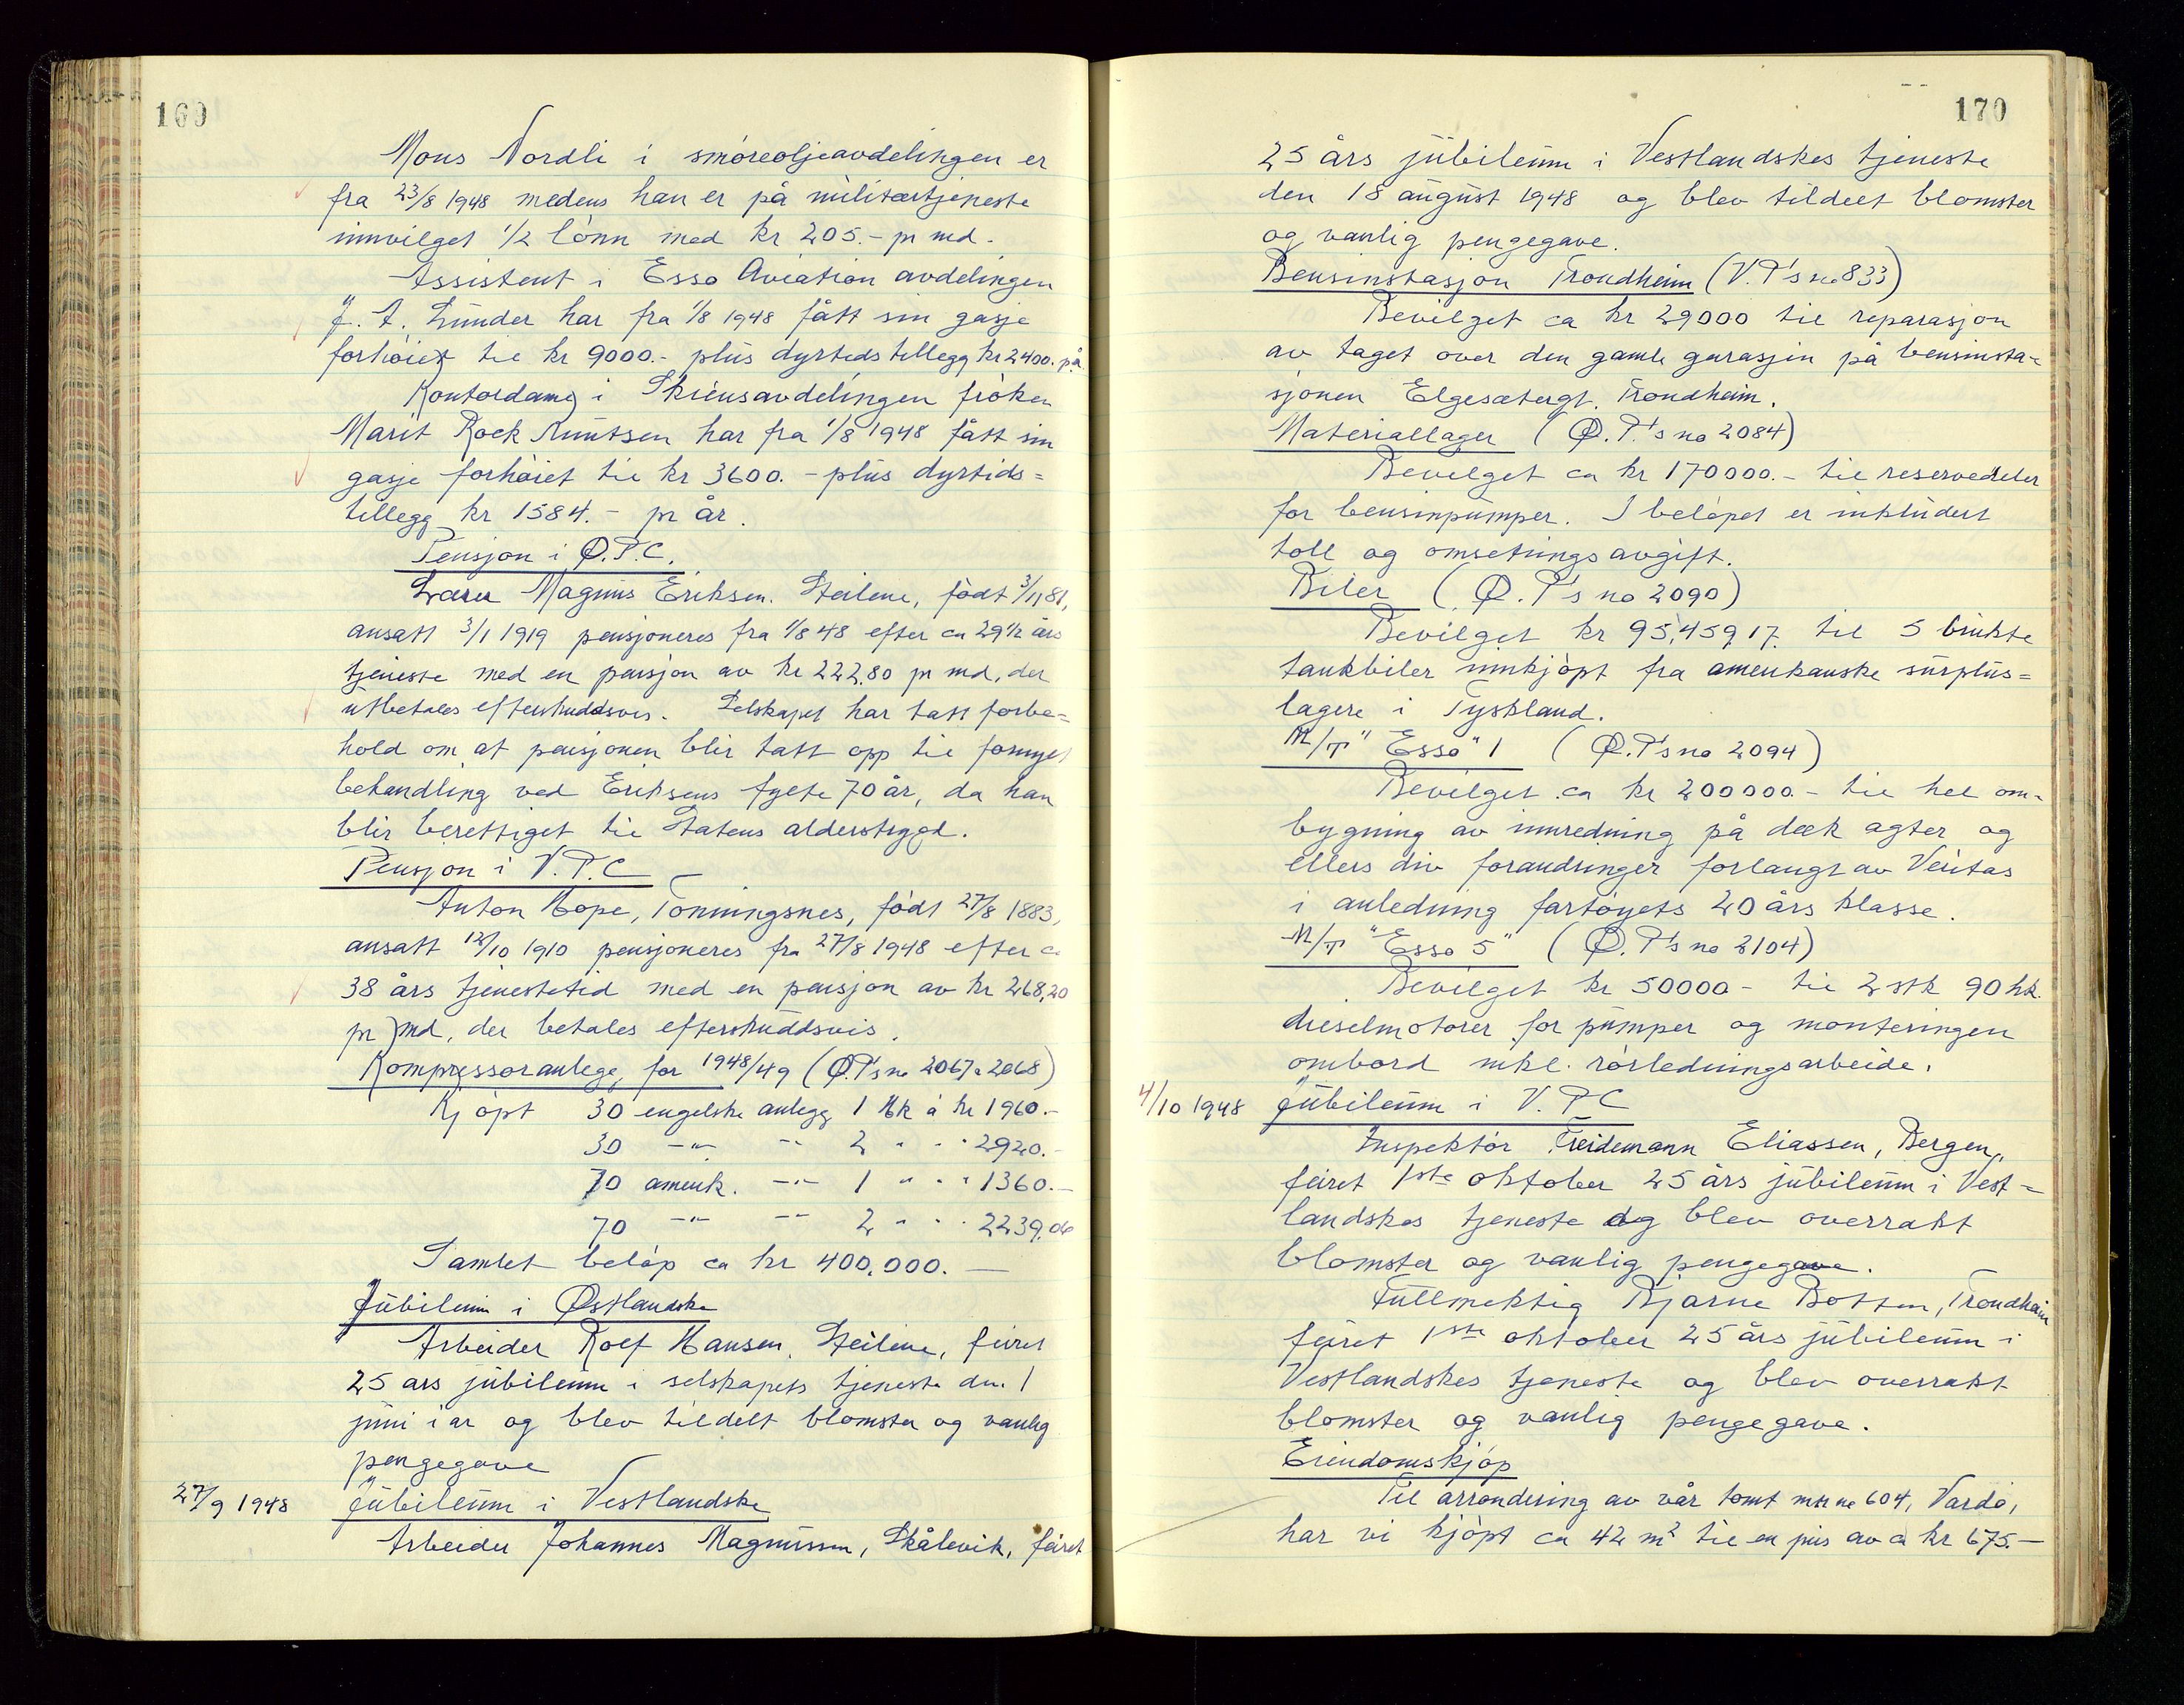 169
Mons Nordli i smøreoljeavdelingen er
fra 23/8 1948 medens han er på militærtjeneste
innvilget 1/2 lønn med kr 205.- pr md.
Assistent i Esso Aviation avdelingen
J. A. Lunder har fra 1/8 1948 fått sin gasje
forhøiet til kr 9000.- plus dyrtidstillegg kr 2400. p.å.
Kontordame i Skiensavdelingen frøken
Marit Rock Knutsen har fra 1/8 1948 fått sin
gasje forhøiet til kr 3600.- plus dyrtids=
tillegg kr 1584.- pr år.
Pensjon i Ø.P.C.
Magnus Eriksen. Steilene, født 3/11 81,
ansatt 3/1 1919 pensjoneres fra 1/8 48 efter ca 29 1/2 års
tjeneste med en pensjon av kr 222.80 pr md. der
utbetales efterskuddsvis. Selskapet har tatt forbe=
hold om at pensjonen blir tatt opp til fornyet
behandling ved Eriksens fylte 70 år, da han
blir berettiget til Statens alderstrygd.
Pensjon i V.P.C
Anton Hope, Tonningsnes, født 27/8 1883,
ansatt 12/10 1910 pensjoneres fra 27/8 1948 efter ca
38 års tjenestetid med en pensjon av kr 268,20
pr md, der betales efterskuddsvis.
Kompressoranlegg for 1948/49 (Ø.P's no 2067 a 2068)
Kjøpt 30 engelske anlegg 1 Hk á kr 1960.-
30 -"- -"- 2 " " " 2920.-
70 amerik. -"- 1 " " " 1360.-
70 -"- -"- 2 " " " 2239,06
Samlet beløp ca kr 400.000.-
Jubileum i Østlandske
Arbeider Rolf Hansen, Steilene, feiret
25 års jubileum i selskapets tjeneste den 1
juni i år og blev tildelt blomster og vanlig
pengegave
27/9 1948 Jubileum i Vestlandske
Arbeider Johannes Magnussen, Skålevik, feiret
170
25 års jubileum i Vestlandskes tjeneste
den 18 august 1948 og blev tildelt blomster
og vanlig pengegave.
Bensinstasjon Trondheim (V.P's no 833)
Bevilget ca kr 29000 til reparasjon
av taget over den gamle garasjen på bensinsta=
sjonen Elgesætergt. Trondheim.
Materiallager (Ø.P.'s no 2084)
Bevilget ca kr 170000.- til reservedeler
for bensinpumper. I beløpet er inkludert
toll og omsetningsavgift.
Biler (Ø.P's no 2090)
Bevilget kr 95,459,17. til 5 brukte
tankbiler innkjøpt fra amerikanske surplus=
lagere i Tyskland.
M/T "Esso" 1 (Ø.P's no 2094)
Bevilget ca kr 200000.- til hel om-
bygning av innredning på dæk agter og
ellers div forandringer forlangt av Veritas
i anledning fartøyets 20 års klasse.
M/T "Esso 5" (Ø.P's no 2104)
Bevilget kr 50000- til 2 stk 90 hk.
dieselmotorer for pumper og monteringen
ombord inkl. rørledningsarbeide.
4/10 1948 Jubileum i V.P.C
Inspektør Freidemann Eliassen, Bergen,
feiret 1ste oktober 25 års jubileum i Vest=
landskes tjeneste og blev overrakt
blomster og vanlig pengegave.
Fullmektig Bjarne Botten, Trondheim
feiret 1ste oktober 25 års jubileum i
Vestlandskes tjeneste og blev overrakt
blomster og vanlig pengegave.
Eiendomskjøp
Til arrondering av vår tomt mtr no 604, Vardø,
har vi kjøpt ca 42 m² til en pris av ca kr 675.-